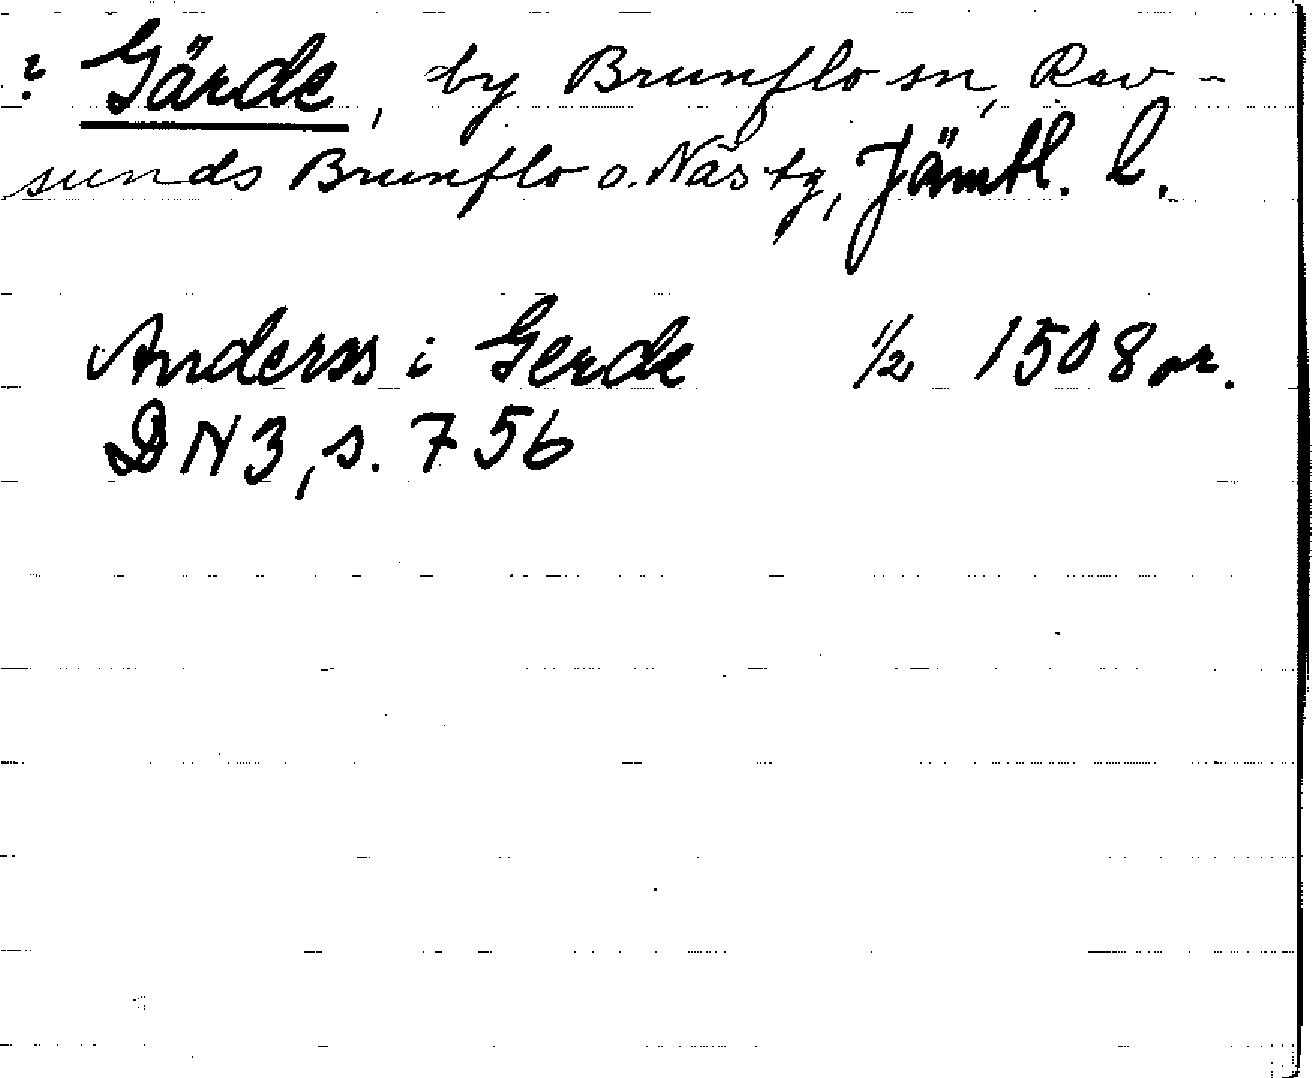 ? Gärde, by Brunflo sn, Rev-
sunds Brunflo o. Näs tg, Jämtl. l.
Anderss i Gerde 1/2 1508 or.
DN 3, s. 756